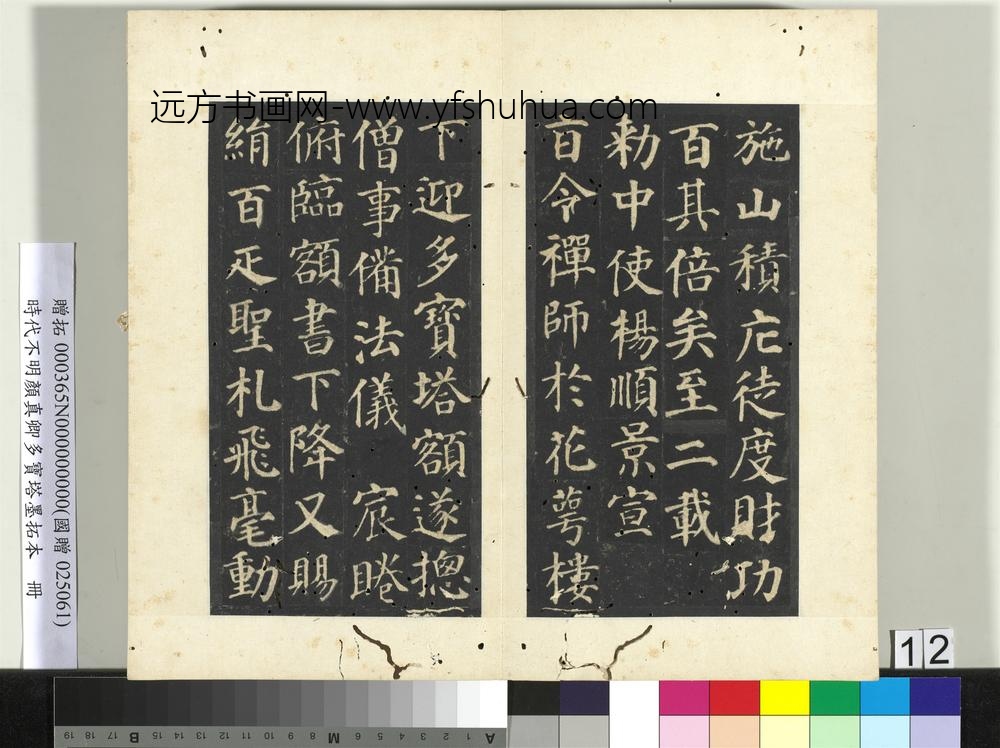 远方书画网-www.yfshuhua.com
施山積庀徒度財功
百其倍矣至二載
勅中使楊順景宣
旨令禪師於花萼樓
下迎多寶塔額遂摠
僧事俻法儀宸睠
俯臨額書下降又賜
絹百疋聖札飛毫動
贈拓 000365N000000000(國贈 025061)
時代不明顏真卿多寶塔墨拓本 冊
12
19 18 17 16 15 14 13 12 11 10 9 8 7 6 5 4 3 2 1
B M A